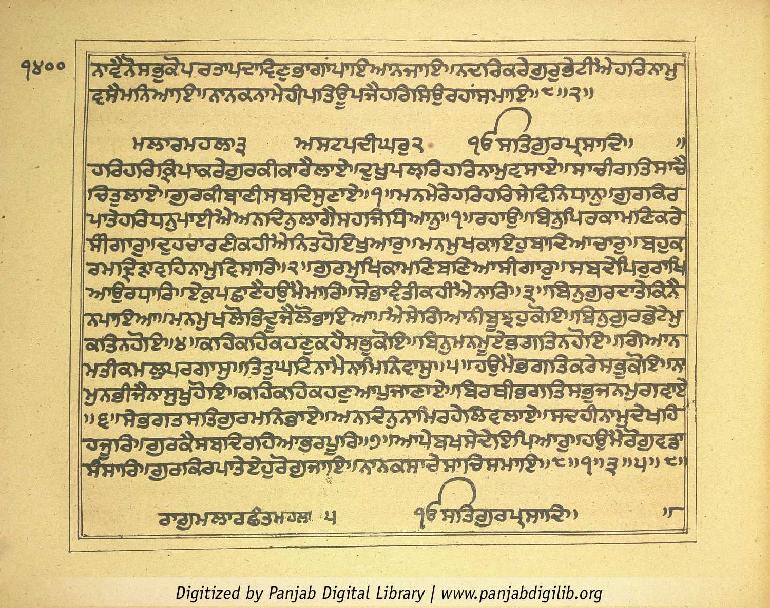 ੧੪੦੦
ਨਾਵੈਨੋਸਭੁਕੋਪਰਤਾਪਦਾਵਿਣੁਭਾਗਾਂਪਾਇਆਨਜਾਇ॥ਨਦਰਿਕਰੇਗੁਰੁਭੇਟੀਐਹਰਿਨਾਮੁ
ਵਸੈਮਨਿਆਇ॥ਨਾਨਕਨਾਮੇਹੀਪਤਿਊਪਜੈਹਰਿਸਿਉਰਹਾਂਸਮਾਇ॥੮॥੨॥
ਮਲਾਰਮਹਲਾ੩ ਅਸਟਪਦੀਘਰੁ੨ ੴਸਤਿਗੁਰਪ੍ਰਸਾਦਿ॥ ॥
ਹਰਿਹਰਿਕ੍ਰਿਪਾਕਰੇਗੁਰਕੀਕਾਰੈਲਾਏ॥ਦੁਖੁਪਲ੍ਹਰਿਹਰਿਨਾਮੁਵਸਾਏ॥ਸਾਚੀਗਤਿਸਾਚੈ
ਚਿਤੁਲਾਏ॥ਗੁਰਕੀਬਾਣੀਸਬਦਿਸੁਣਾਏ॥੧॥ਮਨਮੇਰੇਹਰਿਹਰਿਸੇਵਿਨਿਧਾਨੁ॥ਗੁਰਕਿਰ
ਪਾਤੇਹਰਿਧਨੁਪਾਈਐਅਨਦਿਨੁਲਾਗੈਸਹਜਿਧਿਆਨੁ॥੧॥ਰਹਾਉ॥ਬਿਨੁਪਿਰਕਾਮਣਿਕਰੇ
ਸੀਗਾਰੁ॥ਦੁਹਚਾਰਣੀਕਹੀਐਨਿਤਹੋਇਖੁਆਰੁ॥ਮਨਮੁਖਕਾਇਹੁਬਾਦਿਆਚਾਰੁ॥ਬਹੁਕ
ਰਮਦ੍ਰਿੜਾਵਹਿਨਾਮੁਵਿਸਾਰਿ॥੨॥ਗੁਰਮੁਖਿਕਾਮਣਿਬਣਿਆਸੀਗਾਰੁ॥ਸਬਦੇਪਿਰੁਰਾਖਿ
ਆਉਰਧਾਰਿ॥ਏਕੁਪਛਾਣੈਹਉਮੈਮਾਰਿ॥ਸੋਭਾਵੰਤੀਕਹੀਐਨਾਰਿ॥੩॥ਬਿਨੁਗੁਰਦਾਤੇਕਿਨੈ
ਨਪਾਇਆ॥ਮਨਮੁਖਲੋਭਿਦੂਜੈਲੋਭਾਇਆ॥ਐਸੇਗਿਆਨੀਬੂਝਹੁਕੋਇ॥ਬਿਨੁਗੁਰਭੇਟੇਮੁ
ਕਤਿਨਹੋਇ॥੪॥ਕਹਿਕਹਿਕਹਣੁਕਹੈਸਭੁਕੋਇ॥ਬਿਨੁਮਨਮੂਏਭਗਤਿਨਹੋਇ॥ਗਿਆਨ
ਮਤੀਕਮਲਪਰਗਾਸੁ॥ਤਿਤੁਘਟਿਨਾਮੈਨਾਮਿਨਿਵਾਸੁ॥੫॥ਹਉਮੈਭਗਤਿਕਰੇਸਭੁਕੋਇ॥ਨਾ
ਮਨੁਭੀਜੈਨਾਸੁਖੁਹੋਇ॥ਕਹਿਕਹਿਕਹਣੁਆਪੁਜਾਣਾਏ॥ਬਿਰਥੀਭਗਤਿਸਭੁਜਨਮੁਗਵਾਏ
॥੬॥ਸੇਭਗਤਸਤਿਗੁਰਮਨਿਭਾਏ॥ਅਨਦਿਨੁਨਾਮਿਰਹੇਲਿਵਲਾਏ॥ਸਦਹੀਨਾਮੁਵੇਖਹਿ
ਹਜੂਰਿ॥ਗੁਰਕੈਸਬਦਿਰਹਿਆਭਰਪੂਰਿ॥੭॥ਆਪੇਬਖਸੇਦੇਇਪਿਆਰੁ॥ਹਉਮੈਰੋਗੁਵਡਾ
ਸੰਸਾਰਿ॥ਗੁਰਕਿਰਪਾਤੇਏਹੁਰੋਗੁਜਾਇ॥ਨਾਨਕਸਾਚੇਸਾਚਿਸਮਾਇ॥੮॥੧॥੩॥੫॥੮॥
ਰਾਗੁਮਲਾਰਛੰਤਮਹਲਾ ੫ ੴਸਤਿਗੁਰਪ੍ਰਸਾਦਿ॥
Digitized by Panjab Digital Library | www.panjabdigilib.org